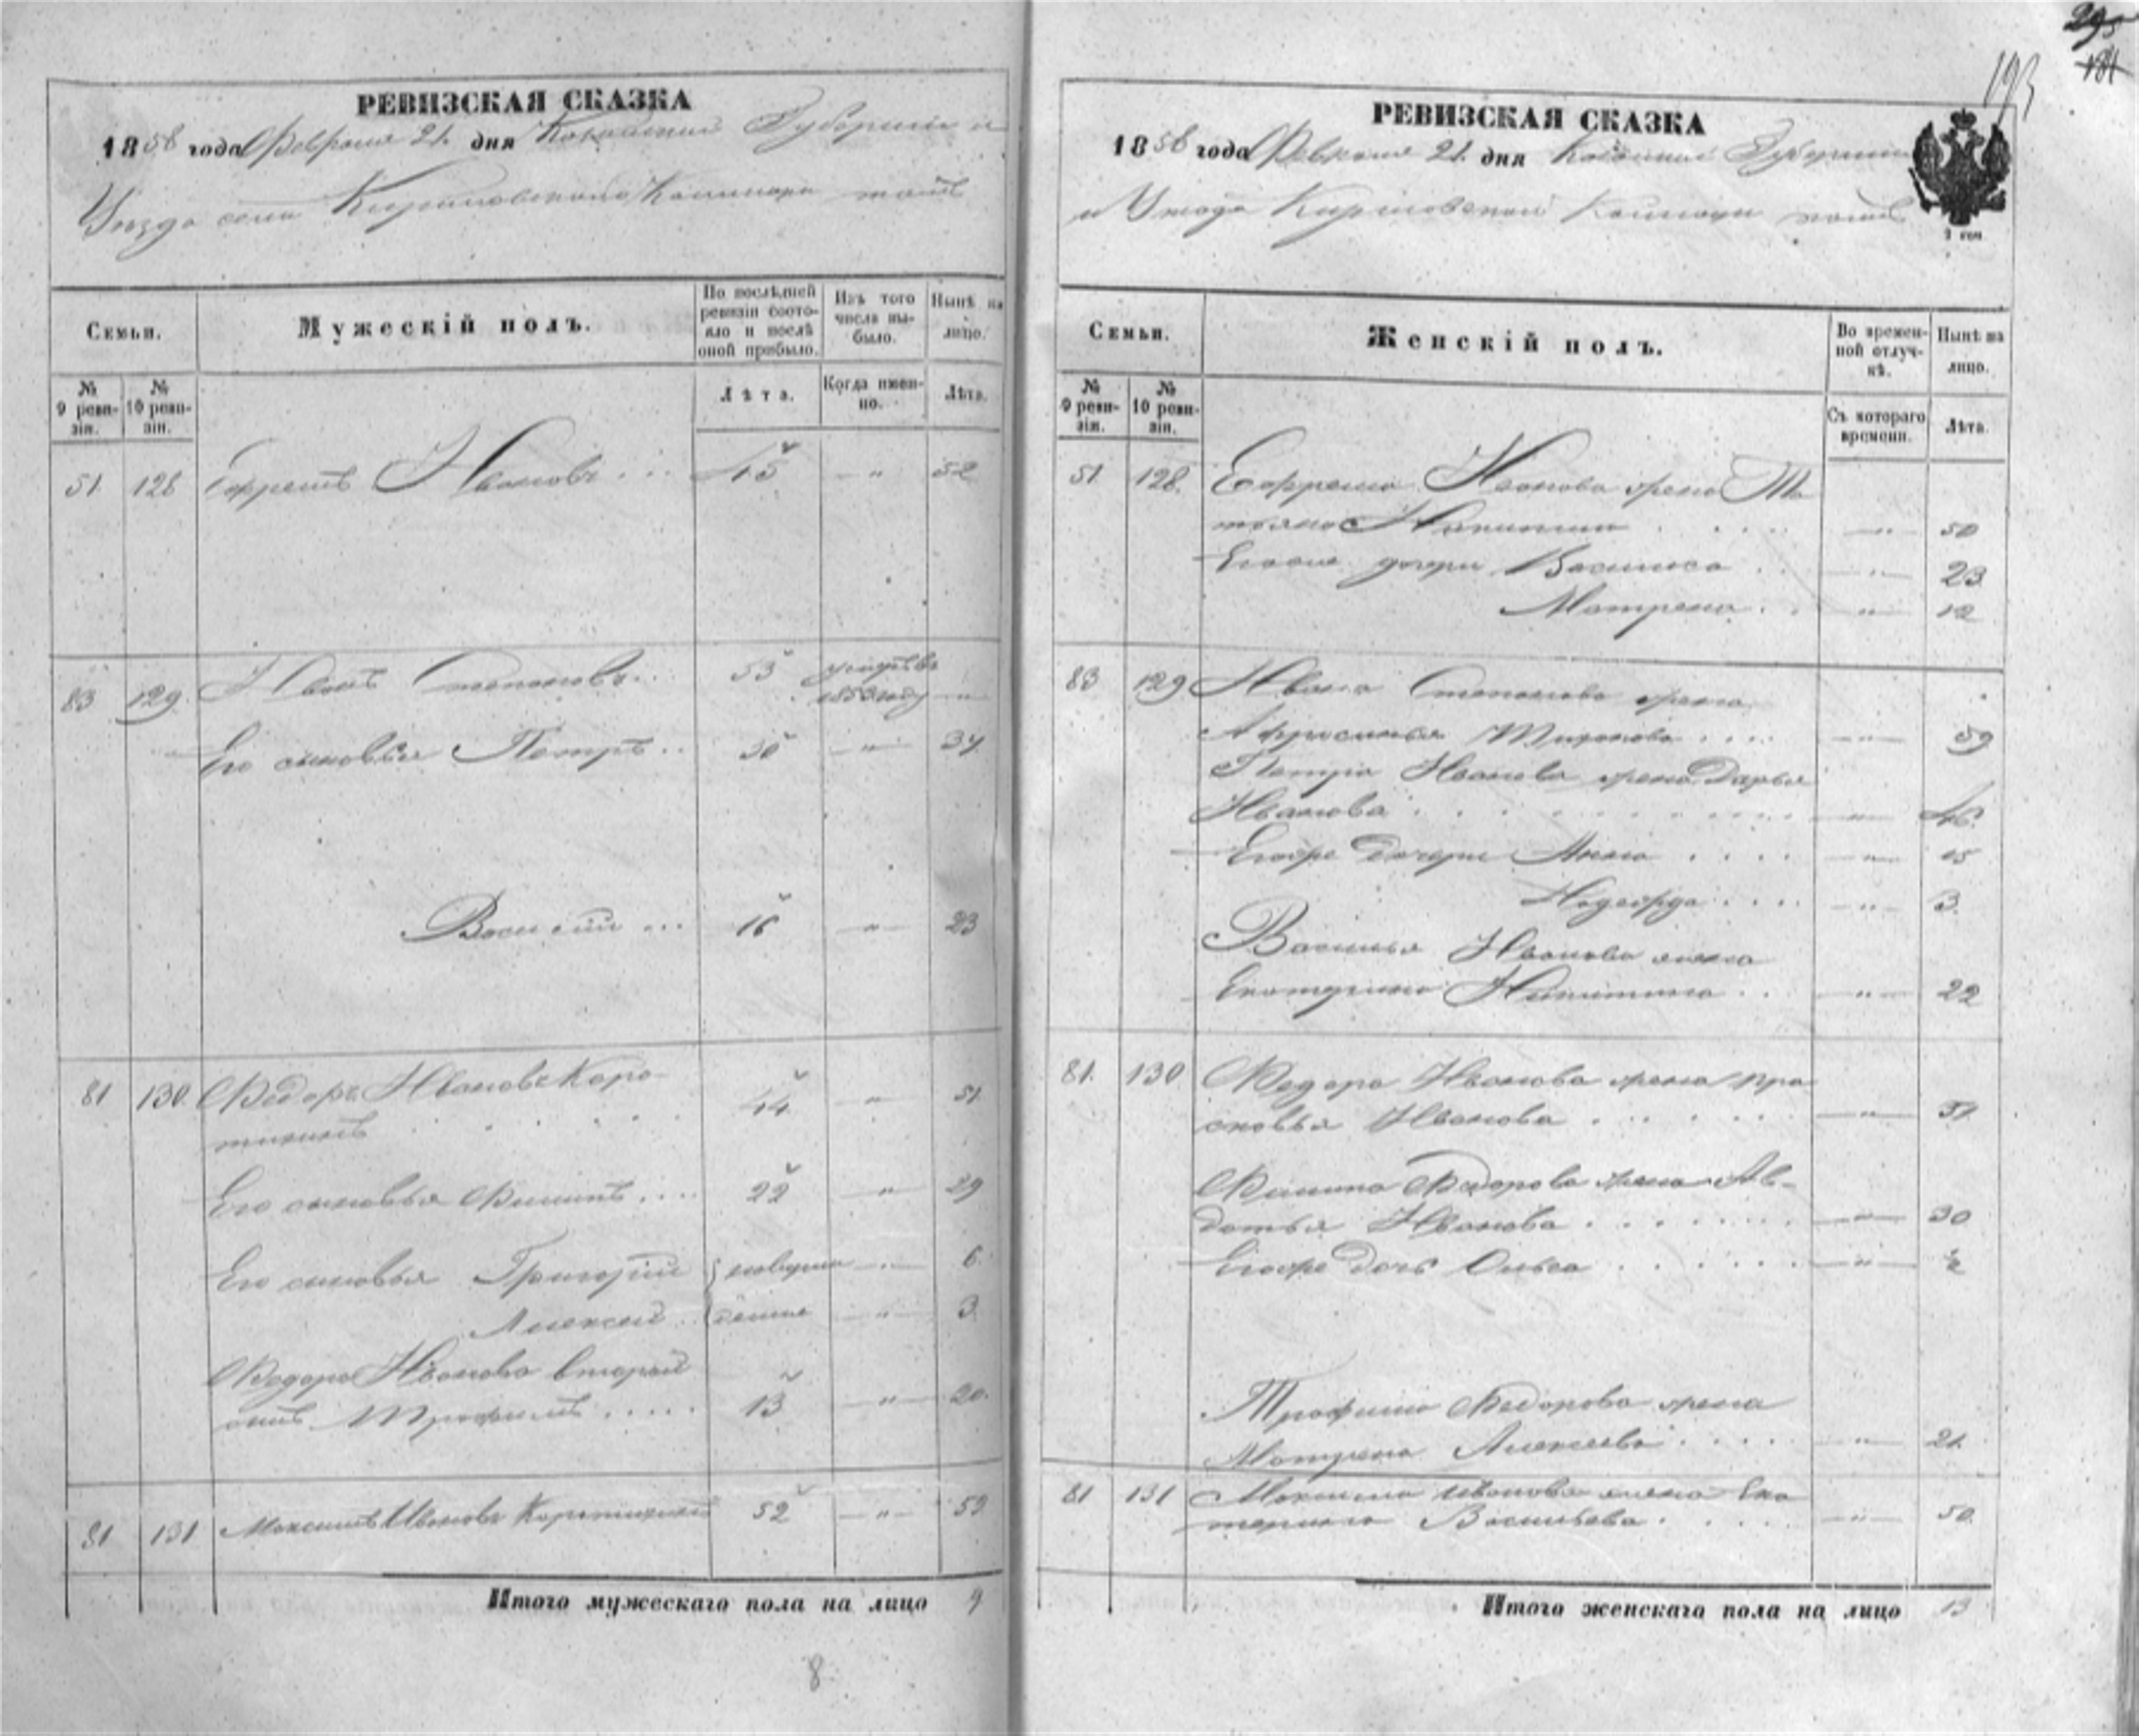 РЕВИЗСКАЯ СКАЗКА
1858 года Февраля 21. дня Казанской Губерніи и
Уѣзда села
Семьи.
Мужескій полъ.
По послѣдней ревизіи состояло и послѣ оной прибыло.
Изъ того числа выбыло.
Нынѣ на лицо.
№ 9 ревизіи.
№ 10 ревизіи.
Лѣта.
Когда именно.
Лѣта.
51. 128 Ефремъ Ивановъ ... 45 — " — 52
83 129. Иванъ Степановъ.. 53 умеръ въ 1853 году "
Его сыновья Петръ .. 30 — " — 37
Василій ... 16 — " — 23
81 130. Федоръ Ивановъ Коро-
44 — " — 51.
Его сыновья Филипъ .... 22 — " — 29
Его сыновья Григорій новорож — " — 6.
Алексей денные — " — 3.
Федора Иванова второй
сынъ Трофимъ ..... 13 — " — 20.
81 131 Максимъ Ивановъ 52 — " — 59
Итого мужескаго пола на лицо 9
8
295
181
193
РЕВИЗСКАЯ СКАЗКА
1858 года Февраля 21. дня Казанской Губерніи
и Уѣзда
Семьи.
Женскій полъ.
Во временной отлучкѣ.
Нынѣ на лицо.
№ 9 ревизіи.
№ 10 ревизіи.
Съ котораго времени.
Лѣта.
51. 128. Ефрема Иванова жена Та
тьяна Никитина — " — 50
Егоже дочери Василиса .. — " — 23.
Матрена .. — " — 12
83 129 Ивана Степанова жена
Афросинья .... — " — 59
Петра Иванова жена Дарья
Иванова — " — 46.
Егоже дочери Анна .... — " — 15
Надежда .... — " — 3.
Василья Иванова жена
Екатерина Никитина .. — " — 22
81. 130. Федора Иванова жена Пра
сковья Иванова — " — 51.
Филипа Федорова жена Ав-
дотья Иванова — " — 30
Егоже дочь Ольга — " — ½
Трофима Федорова жена
Матрена Алексеева .... — " — 21.
81 131 Максима Иванова жена Ека
терина Васильева — " — 50.
Итого женскаго пола на лицо 13